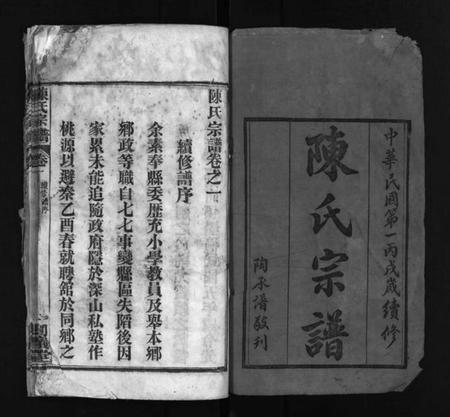 中華民國第一丙戌歲續修
陳氏宗譜
陶永譜敬刊
陳氏宗譜卷之一
續修譜序
余素奉縣委歷充小學教員及舉本鄉
鄉政等職自七七事變縣區失陷後因
家累未能追隨政府隱於深山私塾作
桃源以避秦乙酉春就聘館於同鄉之
陳氏宗譜
卷一
續修譜序